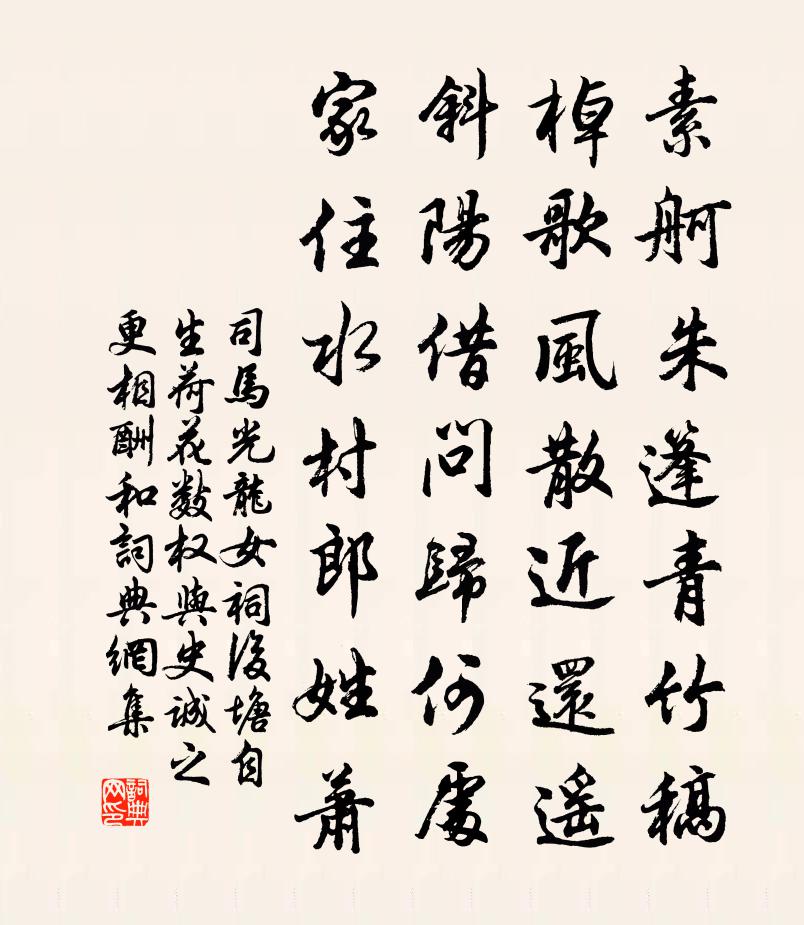 素舸朱蓬青竹稿
棹歌風散近還遥
斜陽借问歸何處
家住水村郎姓萧
司馬光龍女祠後塘自
生荷花數枝與史誠之
更相酬和詞典網集
詞典网印